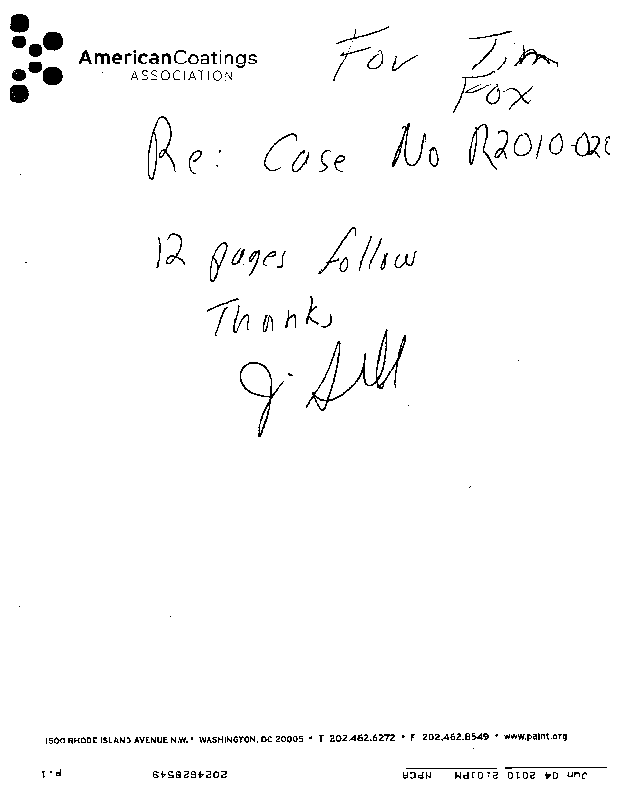 AmericanCoatings
ASSOCIATION
For Tim
Fox
Re: Case No R2010-020
12 pages follow
Thanks
J.
1500 RHODE ISLAND AVENUE N.W. • WASHINGTON, DC 20005 • T 202.462.6272 • F 202.462.8549 • www.paint.org
Jun 04 2010 2:01PM NPCA 2024628549 p.1